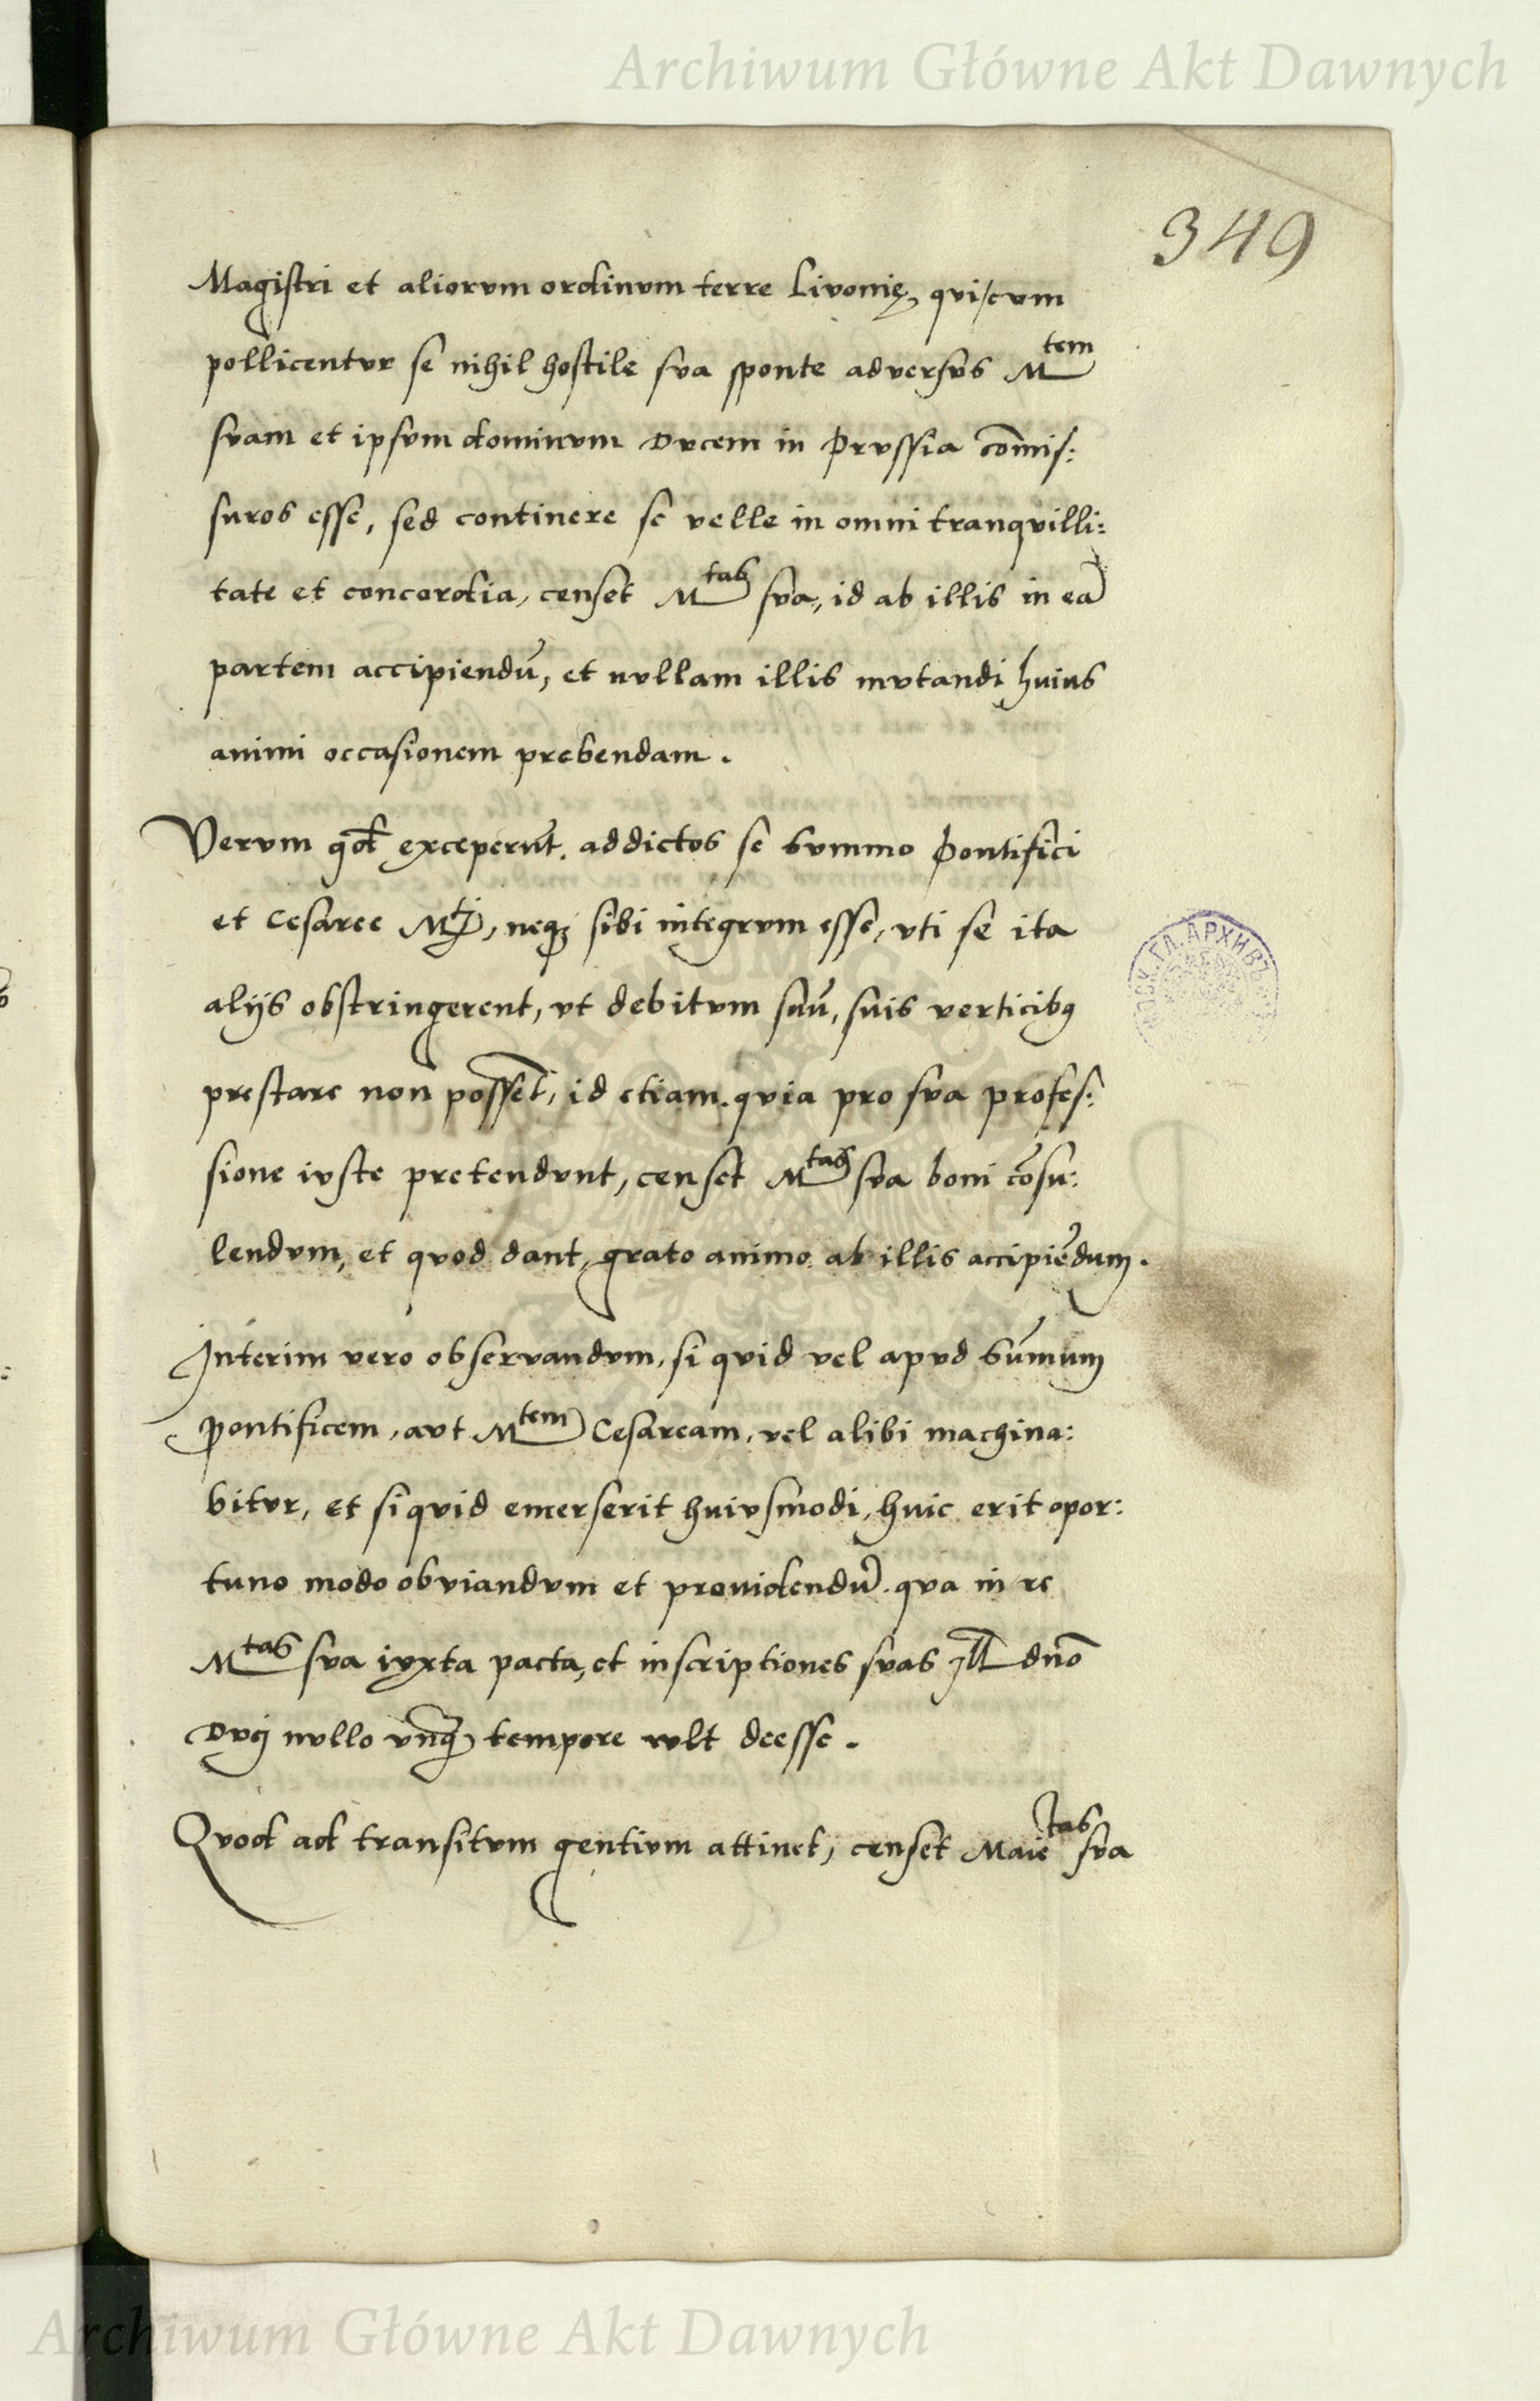 Archiwum Główne Akt Dawnych
349
Magistri et aliorvm ordinvm terre Livonię, qvi cvm
pollicentvr se nihil hostile sva sponte adversvs M^tem
svam et ipsvm dominvm Dvcem in Prvssia com̄is:
suros esse, sed continere se velle in omni tranqvilli:
tate et concordia, censet M^tas sva, id ab illis in eā
partem accipiendū, et nvllam illis mvtandi huius
animi occasionem prebendam.
Vervm qd̄ excepernt̄. addictos se Svmmo Pontifici
et Cesaree M^ti, neq₃ sibi integrvm esse, vti se ita
alijs obstringerent, vt debitvm suū, suis verticibꝯ
prestare non possēt, id etiam. qvia pro sva profes:
sione ivste pretendvnt, censet M^tas sva boni cōsu:
lendvm, et qvod dant, grato animo ab illis accipiēdum.
Interim vero observandvm, si qvid vel apvd Sūmum
Pontificem, avt M^tem Cesaream, vel alibi machina:
bitvr, et si qvid emerserit huivsmodi, huic erit opor:
tuno modo obviandvm et providendū. qva in re
M^tas sva ivxta pacta, et inscriptiones svas Ill̄ dnō
Dvci nvllo vnq̄ tempore vvlt deesse.
Qvod ad transitvm gentivm attinet, censet Maie^tas sva
ГЛ. АРХИВЪ
Archiwum Główne Akt Dawnych